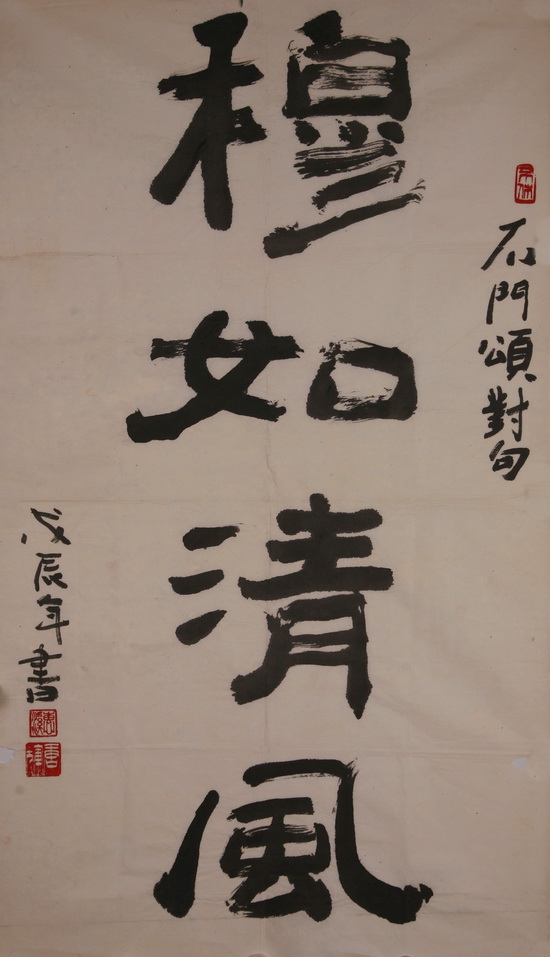 石門頌對句
穆如清風
戊辰年書